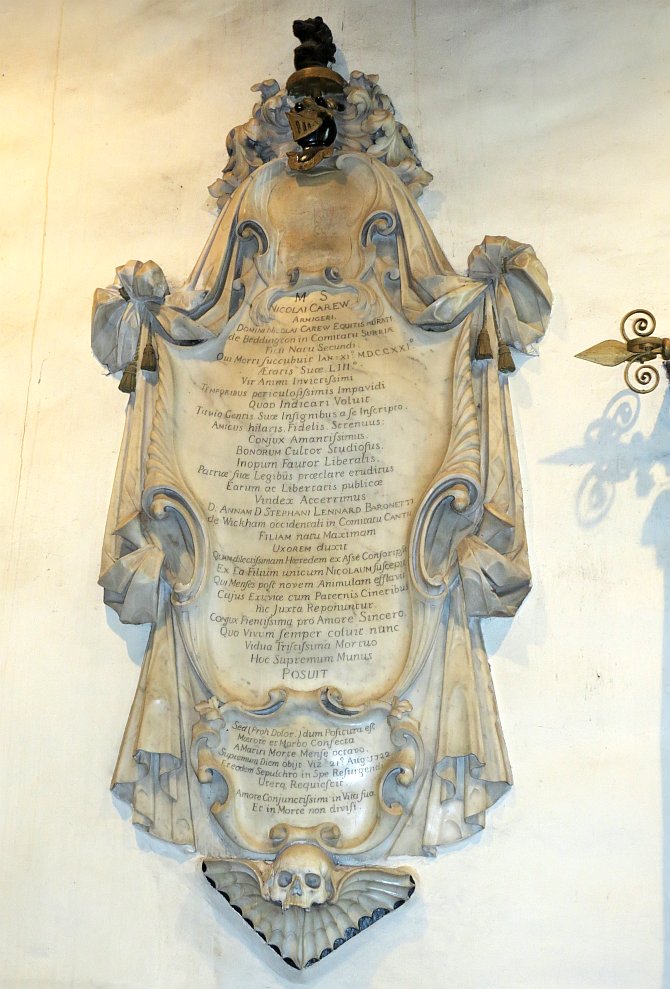 M S
NICOLAI CAREW
ARMIGERI.
DOMINI NICOLAI CAREW EQUITIS AURATI
de Beddington in Comitatu SURRIÆ
FILII NATU SECUNDI.
QUI MORTI SUCCUBUIT IAN: XI: MDCCXXI:
ÆTATIS SUÆ LIII
VIR ANIMI INVICTISSIMI
TEMPORIBUS PERICULOSISSIMIS IMPAVIDI
QUOD INDICARI VOLUIT
GENTIS SUÆ INSIGNIBUS a se INSCRIPTO.
AMICUS HILARIS, FIDELIS, STRENUUS:
CONJUX AMANTISSIMUS.
BONORUM CULTOR STUDIOSUS.
INOPUM FAUTOR LIBERALIS.
PATRIÆ SUÆ LEGIBUS PRÆCLARE ERUDITUS
EARUM AC LIBERTATIS PUBLICÆ
VINDEX ACERRIMUS
D. ANNAM D. STEPHANI LENNARD BARONETTI
de WICKHAM OCCIDENTALI IN COMITATU CANTII
FILIAM NATU MAXIMAM
UXOREM DUXIT
QUAM DILECTISSIMAM HÆREDEM EX ASSE CONSORTEM
EX EA FILIUM UNICUM NICOLAUM SUSCEPIT
QUI MENSES POST NOVEM ANIMULAM EFFLAVIT
CUJUS EXUVIÆ CUM PATERNIS CINERIBUS
HIC JUXTA REPONUNTUR.
CONJUX PIENTISSIMA PRO AMORE SINCERO
QUO VIVUM SEMPER COLUIT NUNC
VIDUA TRISTISSIMA MORTUO
HOC SUPREMUM MUNUS
POSUIT
Sed (Proh Dolor.) dum Positura est
Mœrore et Morbo Confecta
A Mariti Morte Mense octavo.
Supremum Diem obijt Viz.t 21.o Aug: 1722
Eodem Sepulchro in Spe Resurgendi
Uterq, Requiescit.
Amore Conjunctissimi in Vita sua.
Et in Morte non divisi.